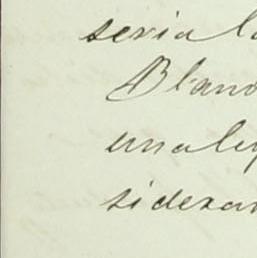 seria la
Bland
una ley
sideran